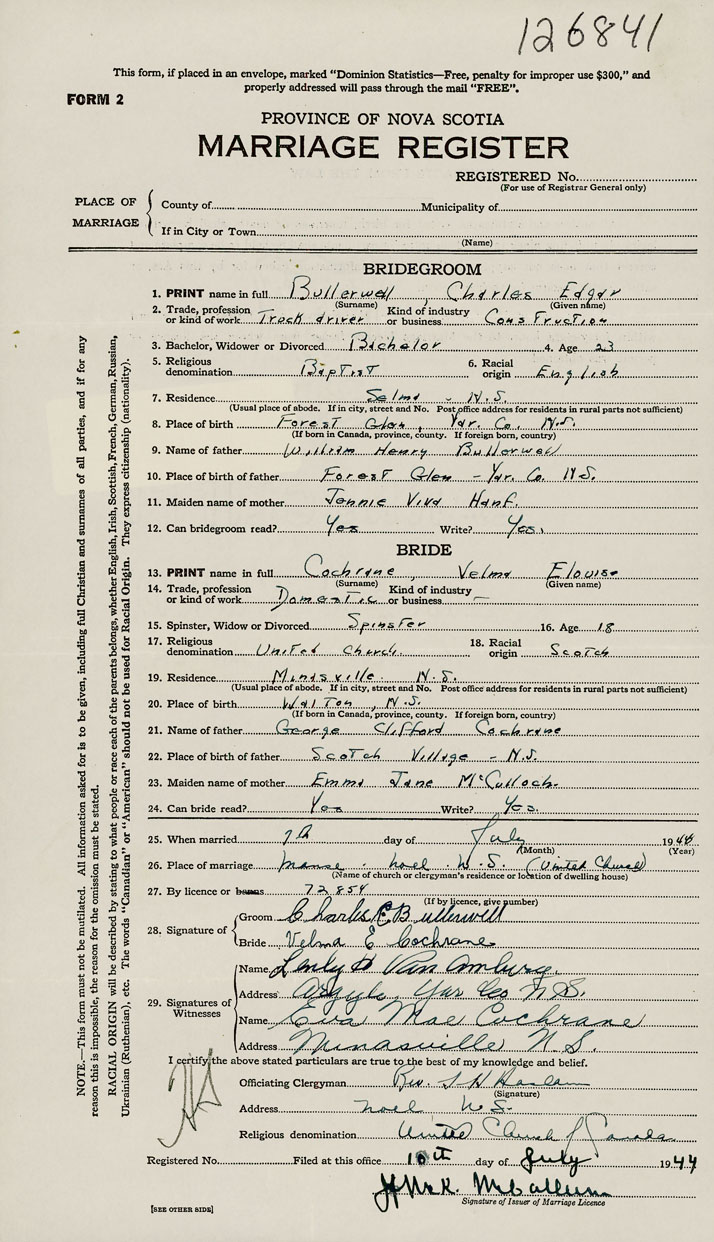 126841
This form, if placed in an envelope, marked "Dominion Statistics—Free, penalty for improper use $300," and
properly addressed will pass through the mail "FREE".
FORM 2
PROVINCE OF NOVA SCOTIA
MARRIAGE REGISTER
REGISTERED No.
(For use of Registrar General only)
PLACE OF MARRIAGE
County of Municipality of
If in City or Town
(Name)
BRIDEGROOM
1. PRINT name in full Bullerwell, Charles Edgar
(Surname) (Given name)
2. Trade, profession or kind of work Truck driver Kind of industry or business Construction
3. Bachelor, Widower or Divorced Bachelor 4. Age 23
5. Religious denomination Baptist 6. Racial origin English
7. Residence Selma - N.S.
(Usual place of abode. If in city, street and No. Post office address for residents in rural parts not sufficient)
8. Place of birth Forest Glen, Yar. Co. N.S.
(If born in Canada, province, county. If foreign born, country)
9. Name of father William Henry Bullerwell
10. Place of birth of father Forest Glen - Yar. Co. N.S.
11. Maiden name of mother Jennie Viva
12. Can bridegroom read? Yes Write? Yes.
BRIDE
13. PRINT name in full Cochrane, Velma Elouise
(Surname) (Given name)
14. Trade, profession or kind of work Domestic Kind of industry or business —
15. Spinster, Widow or Divorced Spinster 16. Age 18
17. Religious denomination United Church 18. Racial origin Scotch
19. Residence Minasville. N.S.
(Usual place of abode. If in city, street and No. Post office address for residents in rural parts not sufficient)
20. Place of birth Walton, N.S.
(If born in Canada, province, county. If foreign born, country)
21. Name of father George Clifford Cochrane
22. Place of birth of father Scotch Village - N.S.
23. Maiden name of mother Emma Jane McCulloch.
24. Can bride read? Yes Write? Yes.
25. When married 7th day of July 1944
(Month) (Year)
26. Place of marriage manse. Noel N.S. (United Church)
(Name of church or clergyman's residence or location of dwelling house)
27. By licence or banns 72854
(If by licence, give number)
28. Signature of
Groom Charles E Bullerwell
Bride Velma E Cochrane
29. Signatures of Witnesses
Name H Van Amburg.
Address Argyle, Yar Co N.S.
Name Eva Mae Cochrane
Address Minasville N.S.
I certify the above stated particulars are true to the best of my knowledge and belief.
Officiating Clergyman Rev.
(Signature)
Address Noel N.S.
Religious denomination United Church of Canada
Registered No. Filed at this office 10th day of July 1944
McCallum
Signature of Issuer of Marriage Licence
[SEE OTHER SIDE]
NOTE.—This form must not be mutilated. All information asked for is to be given, including full Christian and surnames of all parties, and if for any
reason this is impossible, the reason for the omission must be stated.
RACIAL ORIGIN will be described by stating to what people or race each of the parents belongs, whether English, Irish, Scottish, French, German, Russian,
Ukrainian (Ruthenian), etc. The words "Canadian" or "American" should not be used for Racial Origin. They express citizenship (nationality).